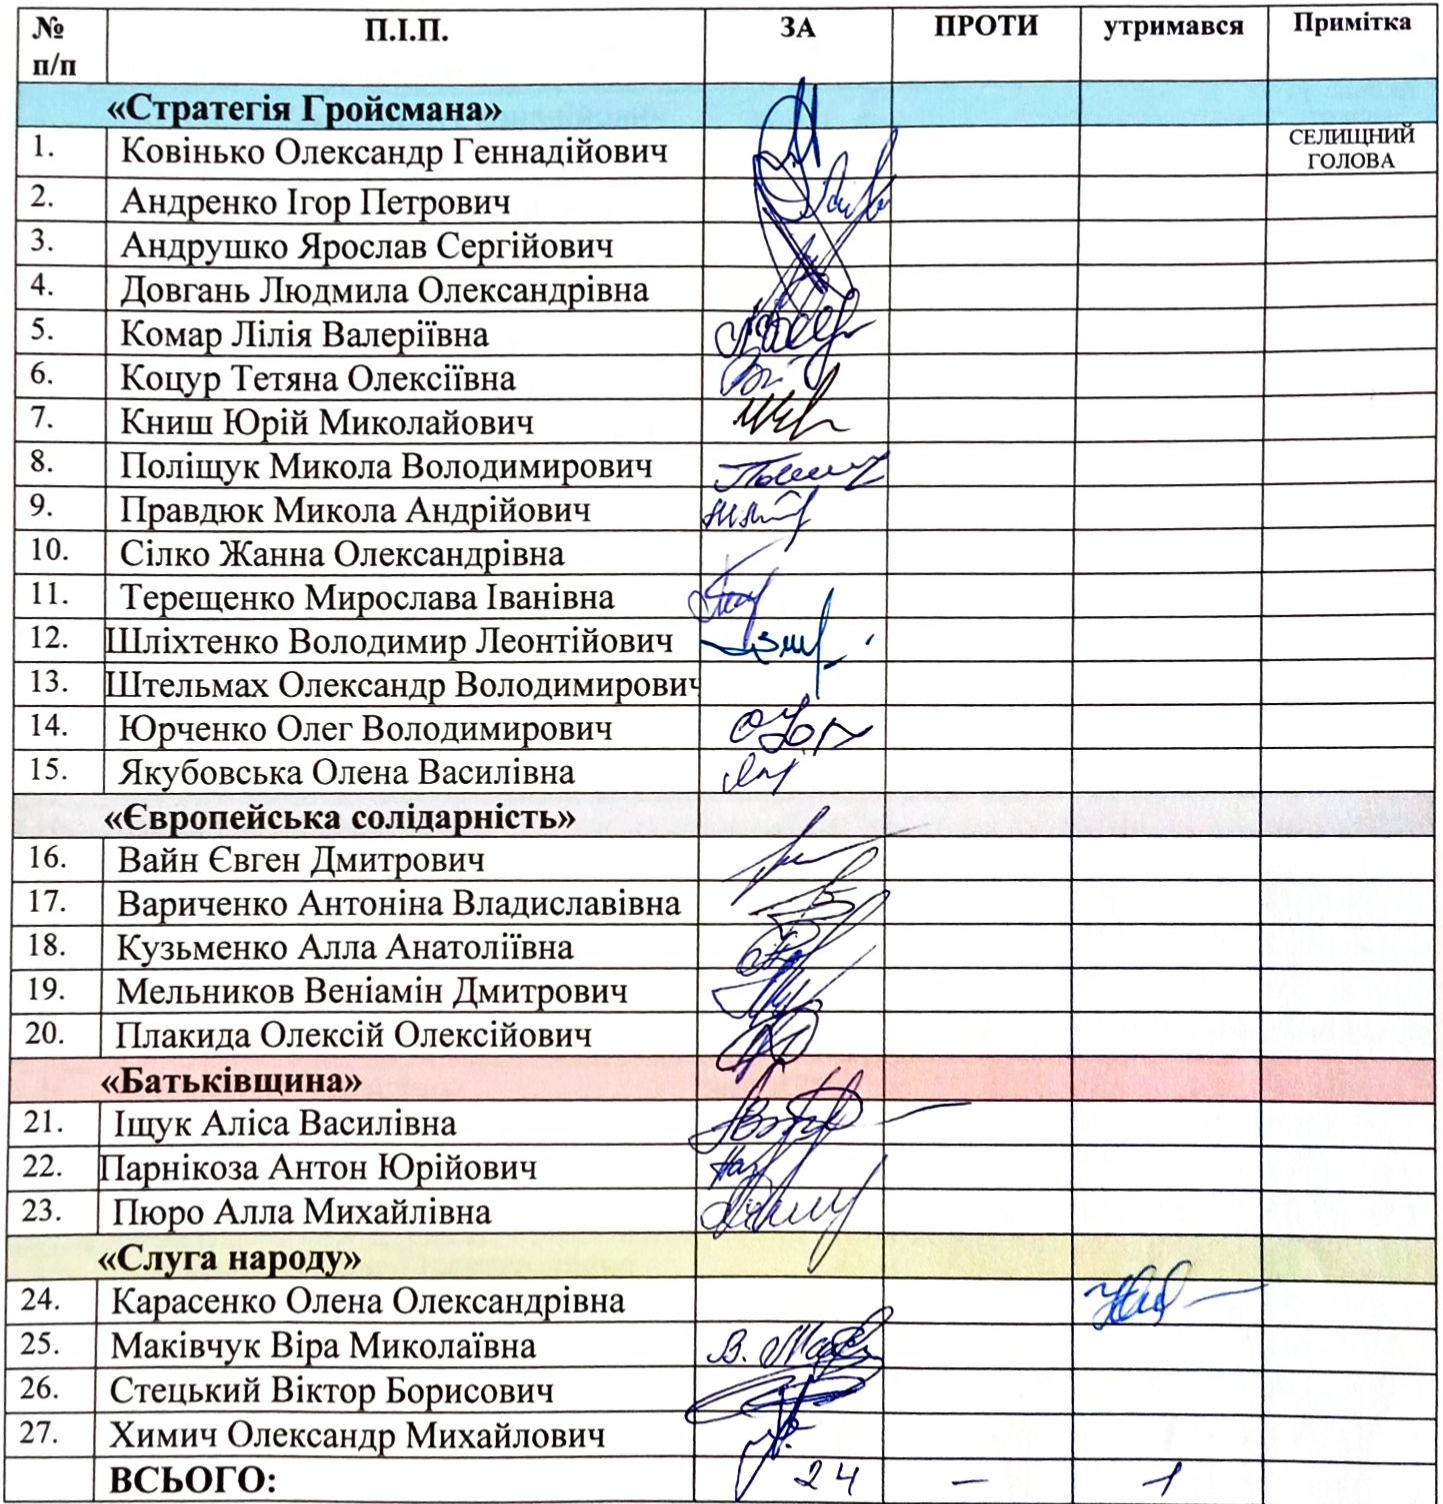 № п/п П.І.П. ЗА ПРОТИ утримався Примітка
«Стратегія Гройсмана»
1. Ковінько Олександр Геннадійович СЕЛИЩНИЙ ГОЛОВА
2. Андренко Ігор Петрович
3. Андрушко Ярослав Сергійович
4. Довгань Людмила Олександрівна
5. Комар Лілія Валеріївна
6. Коцур Тетяна Олексіївна
7. Книш Юрій Миколайович
8. Поліщук Микола Володимирович
9. Правдюк Микола Андрійович
10. Сілко Жанна Олександрівна
11. Терещенко Мирослава Іванівна
12. Шліхтенко Володимир Леонтійович
13. Штельмах Олександр Володимирович
14. Юрченко Олег Володимирович
15. Якубовська Олена Василівна
«Європейська солідарність»
16. Вайн Євген Дмитрович
17. Вариченко Антоніна Владиславівна
18. Кузьменко Алла Анатоліївна
19. Мельников Веніамін Дмитрович
20. Плакида Олексій Олексійович
«Батьківщина»
21. Іщук Аліса Василівна
22. Парнікоза Антон Юрійович
23. Пюро Алла Михайлівна
«Слуга народу»
24. Карасенко Олена Олександрівна
25. Маківчук Віра Миколаївна
26. Стецький Віктор Борисович
27. Химич Олександр Михайлович
ВСЬОГО: 24 – 1